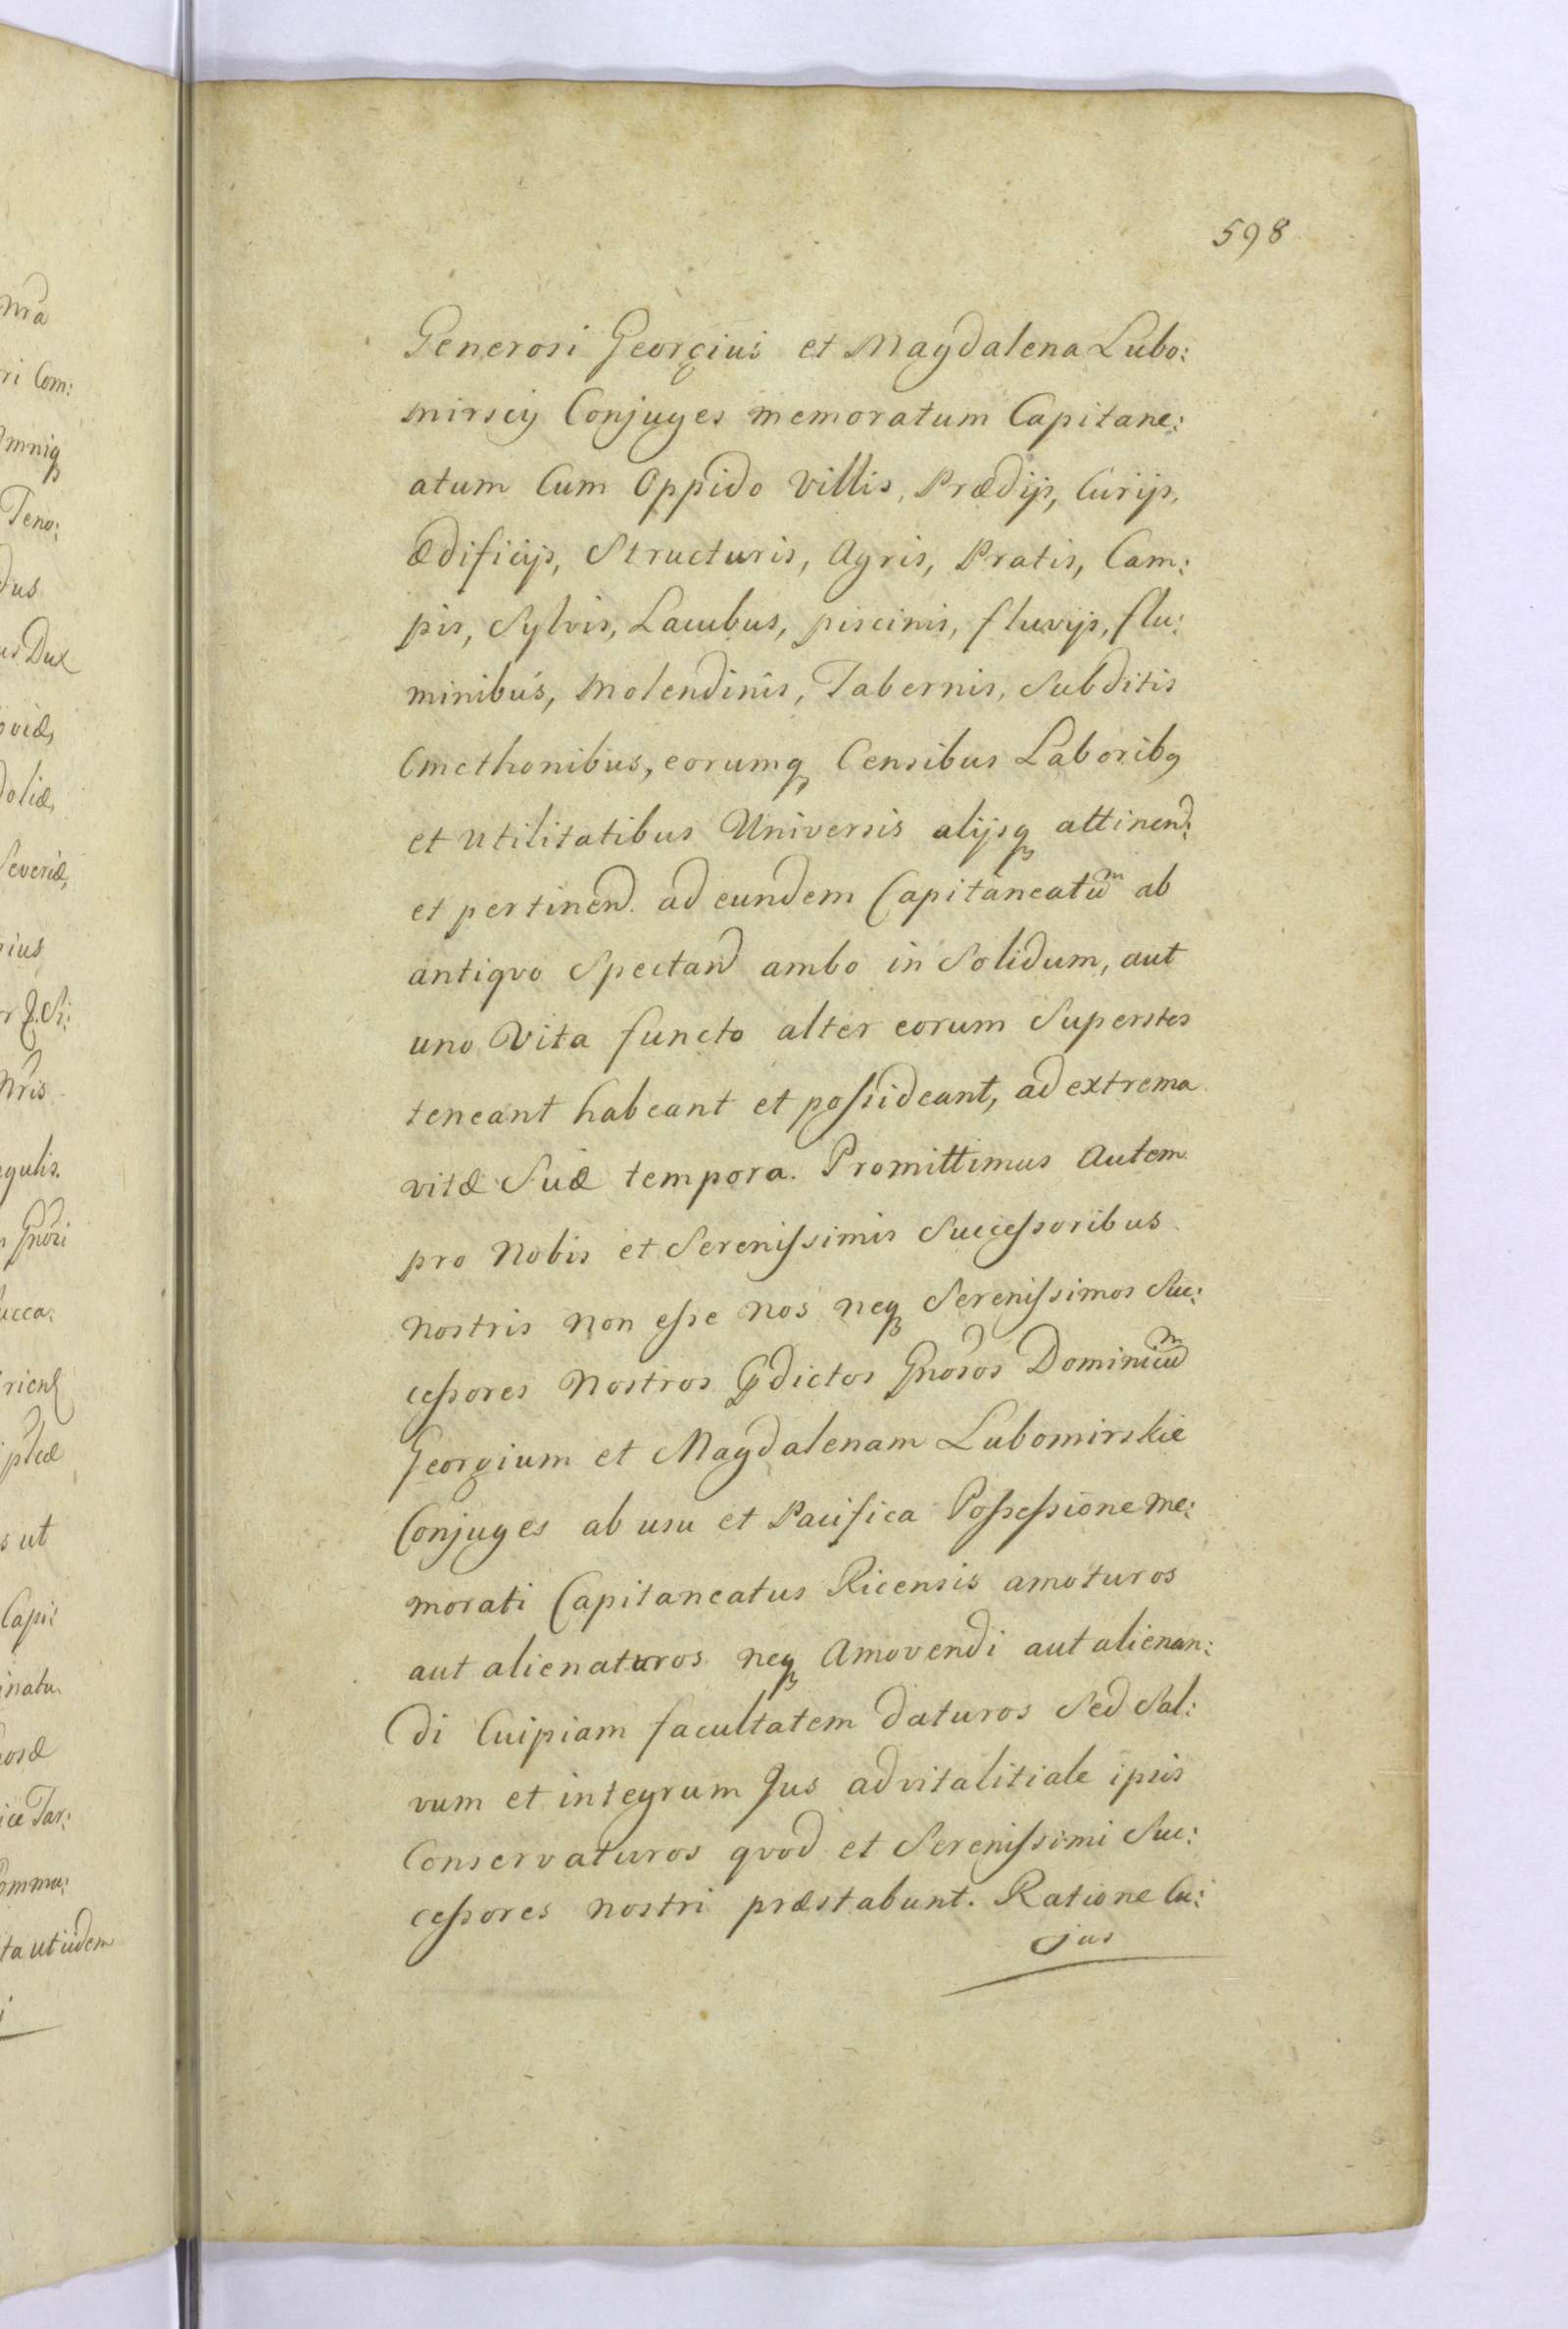 598
Generosi Georgius et Magdalena Lubo:
mirscy Conjuges memoratum Capitane:
atum Cum Oppido Villis, Prædijs, Curijs,
Ædificijs, Structuris, Agris, Pratis, Cam:
pis, Sylvis, Lacubus, piscinis, fluvijs, flu:
minibus, Molendinis, Tabernis, Subditis
Cmethonibus, eorumq Censibus Laborib9
et utilitatibus Universis alijsq attinend:
et pertinend. ad eundem Capitaneatum ab
antiqvo Spectand ambo in Solidum, aut
uno Vita functo alter eorum Superstes
teneant habeant et possideant, ad extrema
vitæ Suæ tempora. Promittimus Autem
pro Nobis et Serenissimis Successoribus
Nostris Non esse Nos neq Serenissimos Suc:
cessores Nostros dictos Gnosos Dominicum
Georgium et Magdalenam Lubomirskie
Conjuges ab usu et Pacifica Possessione me:
morati Capitaneatus Ricensis amoturos
aut alienaturos neq Amovendi aut alienan:
di Cuipiam facultatem daturos Sed Sal:
vum et integrum Jus advitalitiale ipsis
Conservaturos qvod et Serenissimi Suc:
cessores nostri præstabunt. Ratione Cu:
jus
nra
ri Com:
omniq
Teno:
dus
us Dux
oviæ,
doliæ,
Severiæ,
rius
nris
egulis.
Gnosi
ucca:
s ut
Capi:
inatu
osæ
ice Tar:
omma:
ta ut iidem